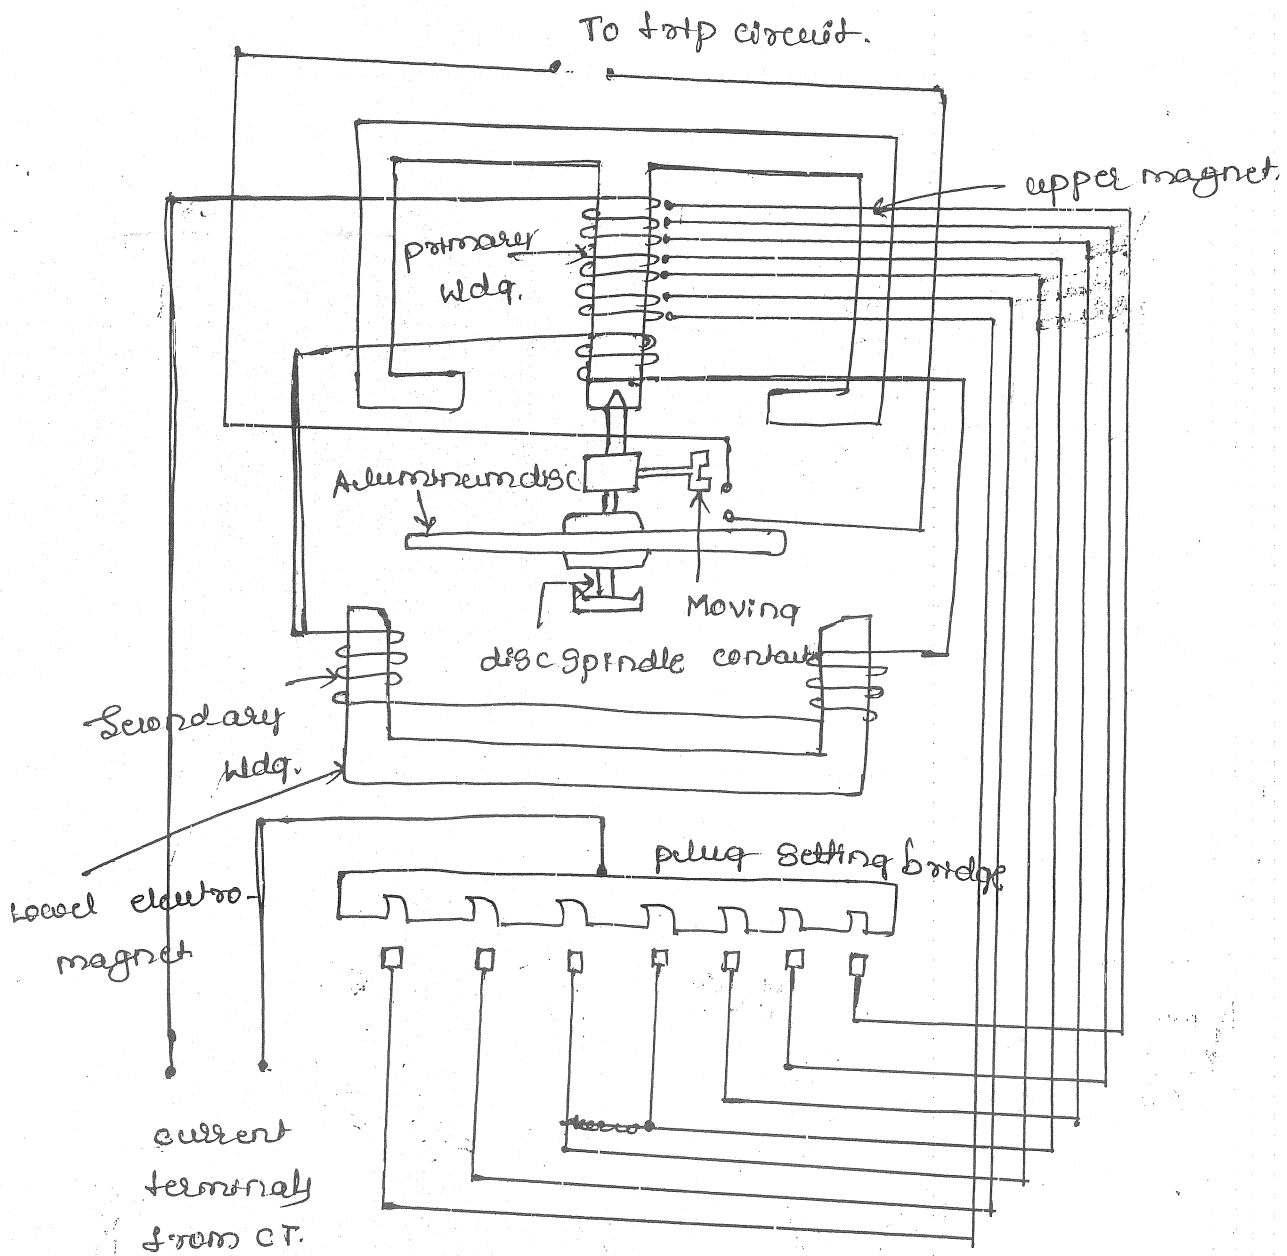 To trip circuit.
upper magnet.
primary
wdg.
Aluminum disc
Moving
disc spindle contact
Secondary
wdg.
plug setting bridge
Lowel electro
magnet
current
terminals
from CT.